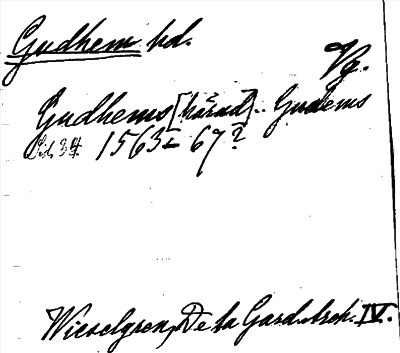 Gudhem hd.
Vg.
Gudhems [härad].. Gudems
Sid. 34. 1563 - 67?
Wieselgren, De la Gard. arch. IV.